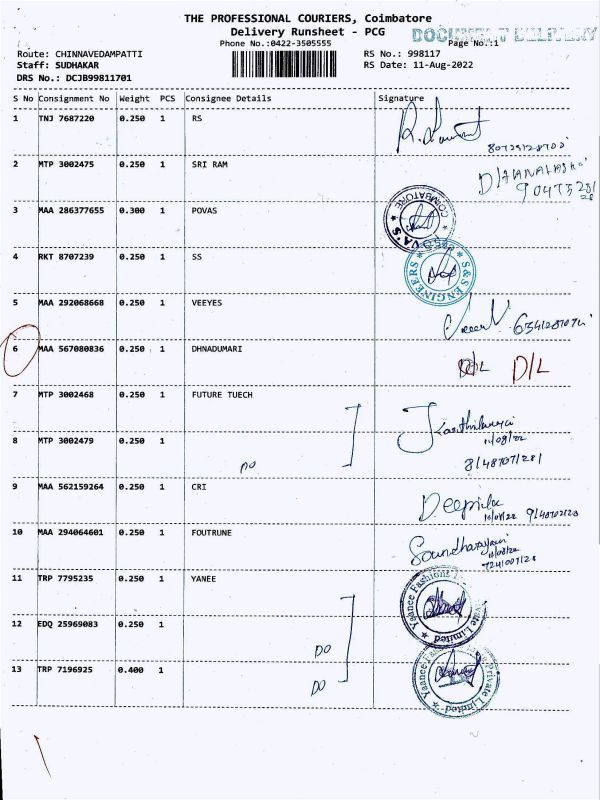 THE PROFESSIONAL COURIERS, Coimbatore
Delivery Runsheet - PCG
DOCUMENT DELIVERY
Phone No.:0422-3505555
Page No.:1
Route: CHINNAVEDAMPATTI
RS No.: 998117
Staff: SUDHAKAR
RS Date: 11-Aug-2022
DRS No.: DCJB99811701
S No Consignment No Weight PCS Consignee Details Signature
1 TNJ 7687220 0.250 1 RS
2 MTP 3002475 0.250 1 SRI RAM
3 MAA 286377655 0.300 1 POVAS
COIMBATORE
4 RKT 8707239 0.250 1 SS
S&S ENGINEERS
5 MAA 292068668 0.250 1 VEEYES
6 MAA 567080836 0.250 1 DHNADUMARI D/L D/L
7 MTP 3002468 0.250 1 FUTURE TUECH
11/08/22
8 MTP 3002479 0.250 1 DO
9 MAA 562159264 0.250 1 CRI Deepika
10 MAA 294064601 0.250 1 FOUTRUNE
11/08/22
11 TRP 7795235 0.250 1 YANEE
Yaanee Fashions Private Limited
12 EDQ 25969083 0.250 1 DO
13 TRP 7196925 0.400 1 DO
Yaanee Private Limited